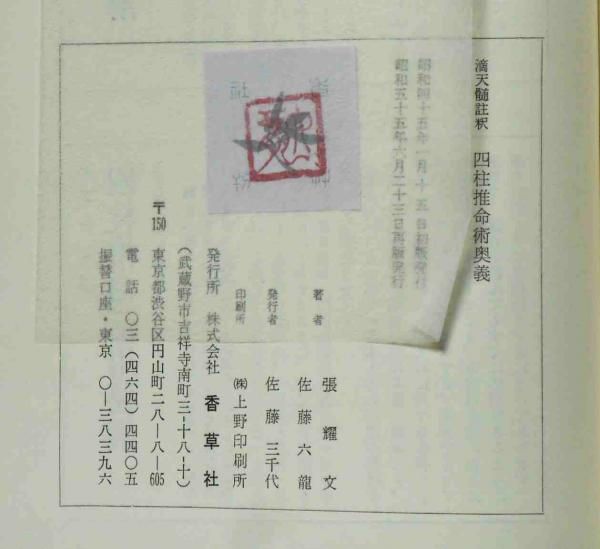 滴天髓註釈 四柱推命術奥義
昭和四十五年一月十五日初版発行
昭和五十五年六月二十三日再版発行
著者 張耀文
佐藤六龍
発行者 佐藤三千代
印刷所 ㈱上野印刷所
発行所 株式会社 香草社
(武蔵野市吉祥寺南町三ー十八ー十)
〒150 東京都渋谷区円山町二八ー八ー605
電話 〇三(四六四)四四〇五
振替口座・東京 〇ー三八三九六